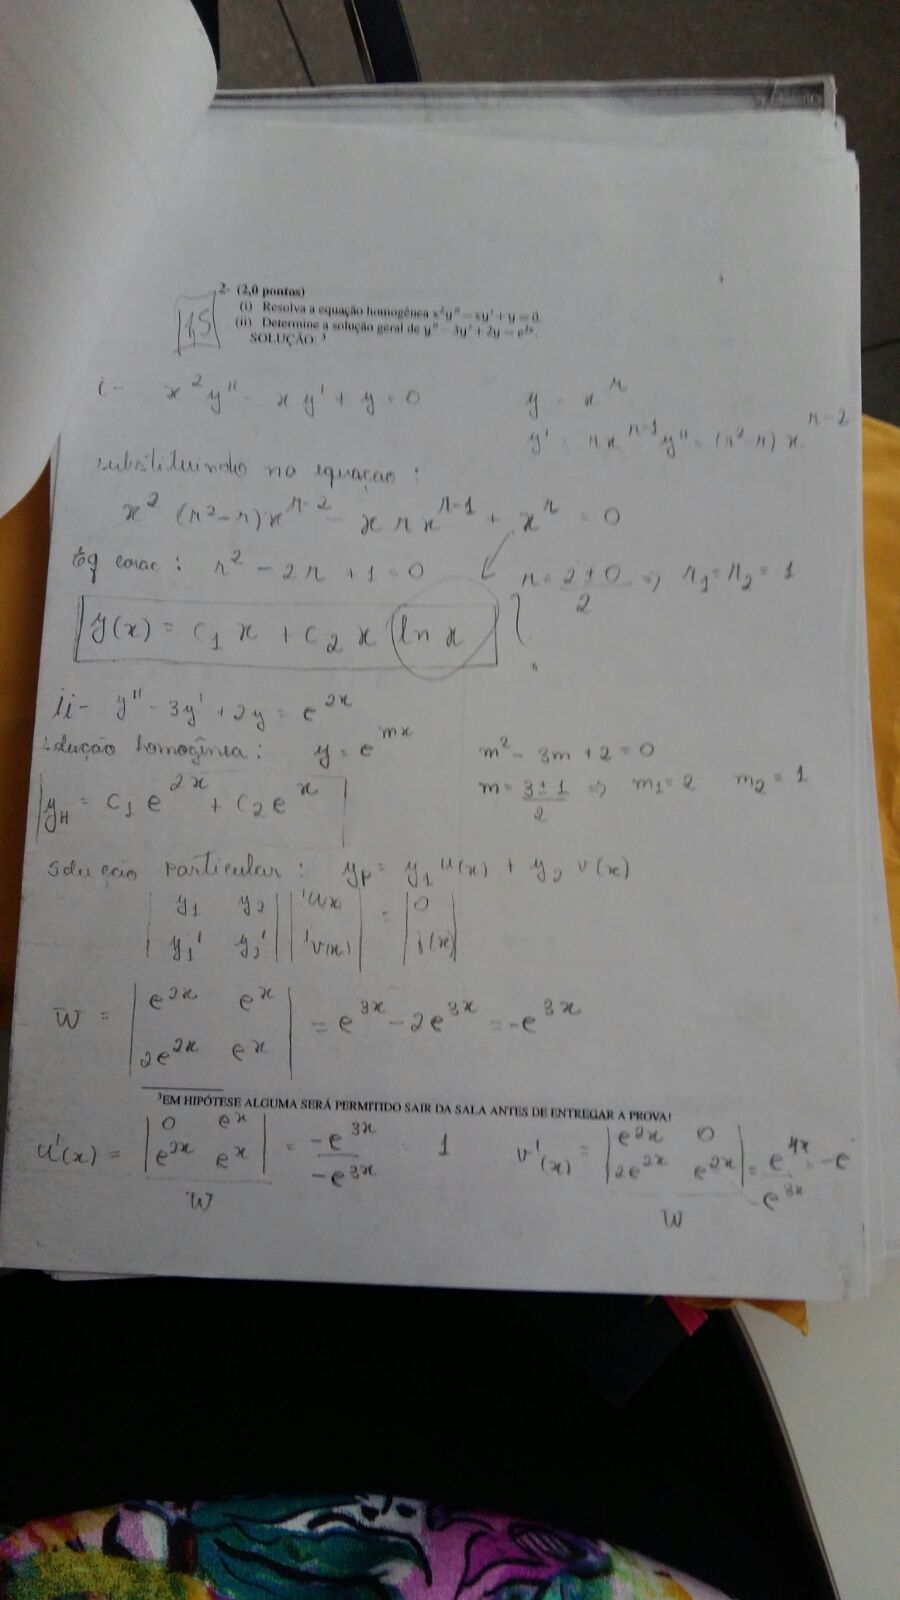 2- (2,0 pontos)
(i) Resolva a equação homogênea x²y'' − xy' + y = 0.
(ii) Determine a solução geral de y'' − 3y' + 2y = e²ˣ.
SOLUÇÃO: ³
1,5
i- x² y'' - x y' + y = 0
y = x^r
y' = r x^(r-1) y'' = (r² - r) x^(r-2)
substituindo na equação :
x² (r² - r) x^(r-2) - x r x^(r-1) + x^r = 0
Eq carac : r² - 2r + 1 = 0
r = (2 ± 0)/2 => r₁ = r₂ = 1
y(x) = c₁ x + c₂ x ln x
ii- y'' - 3y' + 2y = e^(2x)
solução homogênea : y = e^(mx)
m² - 3m + 2 = 0
m = (3 ± 1)/2 => m₁ = 2 m₂ = 1
y_H = C₁ e^(2x) + C₂ e^x
solução particular : y_p = y₁ u(x) + y₂ v(x)
| y₁ y₂ | | 'u(x) | = | 0 |
| y₁' y₂' | | 'v(x) | | f(x) |
W = | e^(2x) e^x | = e^(3x) - 2e^(3x) = -e^(3x)
| 2e^(2x) e^x |
³EM HIPÓTESE ALGUMA SERÁ PERMITIDO SAIR DA SALA ANTES DE ENTREGAR A PROVA!
u'(x) = | 0 e^x | = -e^(3x) / -e^(3x) = 1
| e^(2x) e^x |
W
v'(x) = | e^(2x) 0 | = e^(4x) / -e^(3x) = -e
| 2e^(2x) e^(2x) |
W